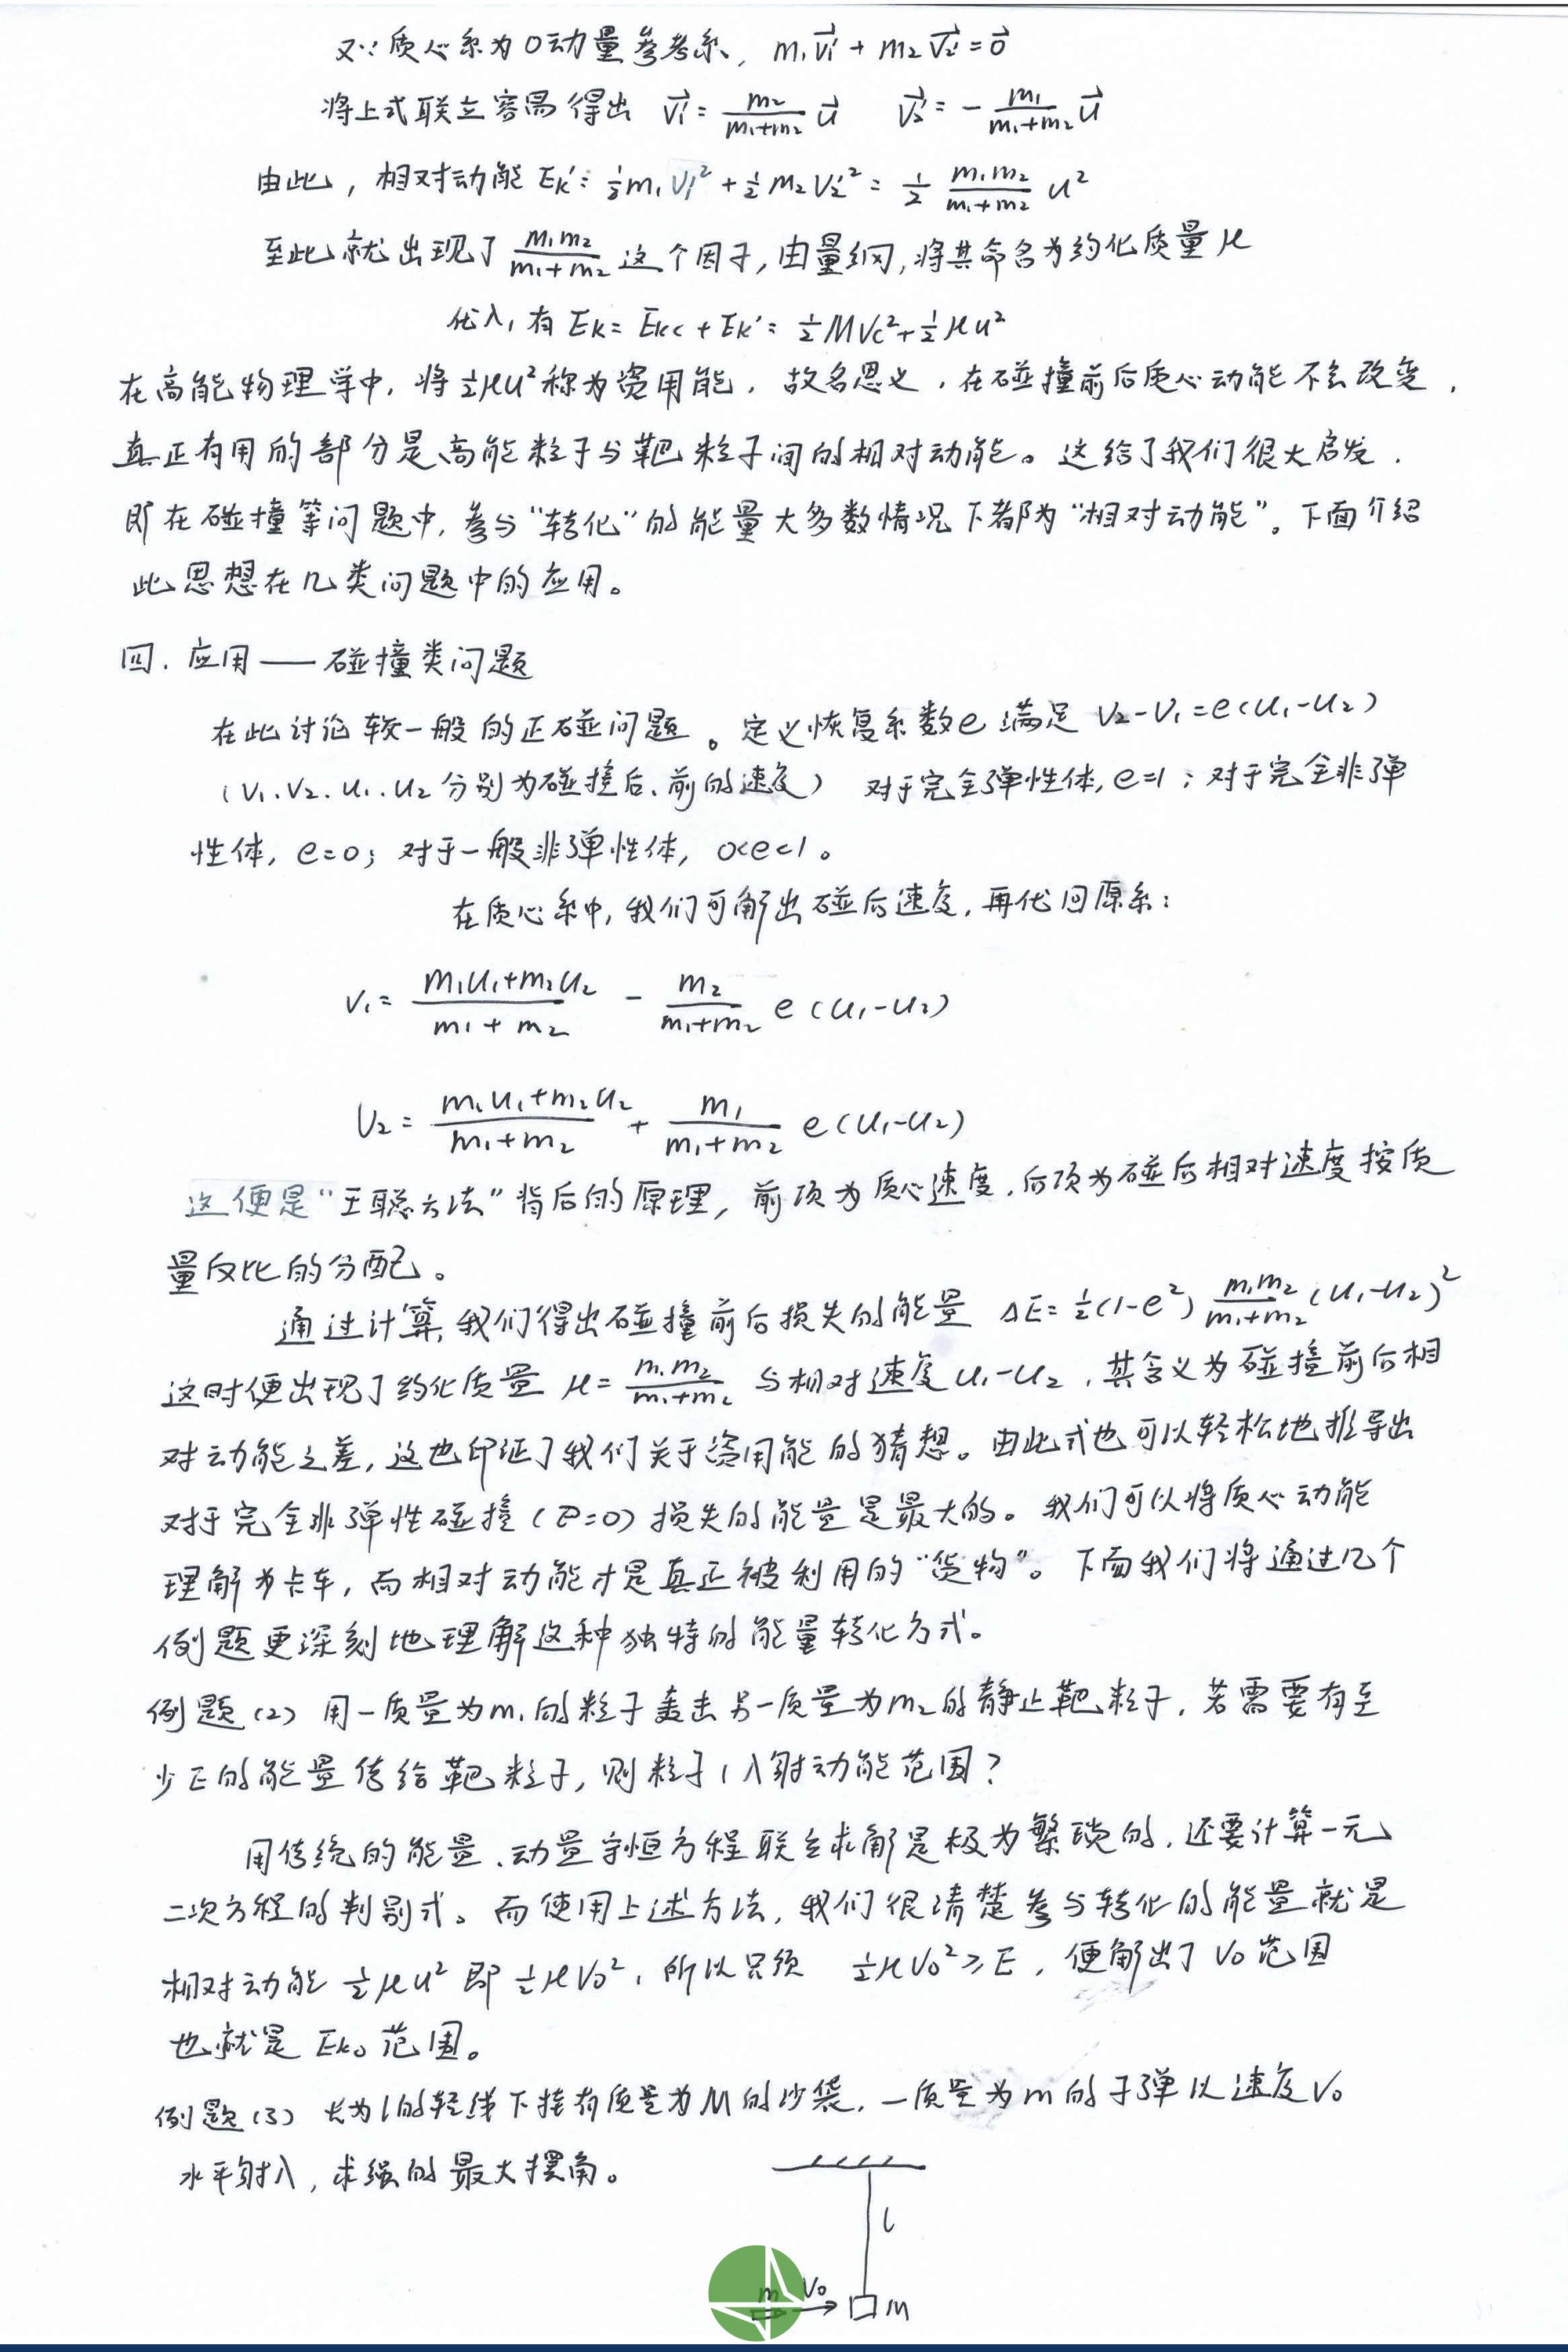 又∵质心系为0动量参考系, m₁v⃗₁' + m₂v⃗₂' = 0⃗
将上式联立容易得出 v⃗₁' = m₂/(m₁+m₂) u⃗  v⃗₂' = -m₁/(m₁+m₂) u⃗
由此, 相对动能 Ek' = ½m₁v₁'² + ½m₂v₂'² = ½ m₁m₂/(m₁+m₂) u²
至此就出现了 m₁m₂/(m₁+m₂) 这个因子, 由量纲, 将其命名为约化质量μ
代入, 有 Ek = Ekc + Ek' = ½MVc² + ½μu²
在高能物理学中, 将½μu²称为资用能, 故名思义, 在碰撞前后质心动能不会改变,
真正有用的部分是高能粒子与靶粒子间的相对动能。这给了我们很大启发,
即在碰撞等问题中, 参与“转化”的能量大多数情况下都为“相对动能”。下面介绍
此思想在几类问题中的应用。
四. 应用——碰撞类问题
在此讨论较一般的正碰问题。定义恢复系数e满足 v₂-v₁=e(u₁-u₂)
(v₁、v₂、u₁、u₂分别为碰撞后、前的速度) 对于完全弹性体, e=1; 对于完全非弹
性体, e=0; 对于一般非弹性体, 0<e<1。
在质心系中, 我们可解出碰后速度, 再代回原系:
v₁ = (m₁u₁+m₂u₂)/(m₁+m₂) - m₂/(m₁+m₂) e(u₁-u₂)
v₂ = (m₁u₁+m₂u₂)/(m₁+m₂) + m₁/(m₁+m₂) e(u₁-u₂)
这便是“王聪方法”背后的原理, 前项为质心速度, 后项为碰后相对速度按质
量反比的分配。
通过计算, 我们得出碰撞前后损失的能量 ΔE = ½(1-e²) m₁m₂/(m₁+m₂) (u₁-u₂)²
这时便出现了约化质量 μ = m₁m₂/(m₁+m₂) 与相对速度u₁-u₂, 其含义为碰撞前后相
对动能之差, 这也印证了我们关于资用能的猜想。由此式也可以轻松地推导出
对于完全非弹性碰撞(e=0)损失的能量是最大的。我们可以将质心动能
理解为卡车, 而相对动能才是真正被利用的“货物”。下面我们将通过几个
例题更深刻地理解这种独特的能量转化方式。
例题(2) 用一质量为m₁的粒子轰击另一质量为m₂的静止靶粒子, 若需要有至
少E的能量传给靶粒子, 则粒子1入射动能范围?
用传统的能量、动量守恒方程联立求解是极为繁琐的, 还要计算一元
二次方程的判别式。而使用上述方法, 我们很清楚参与转化的能量就是
相对动能 ½μu² 即 ½μv₀², 所以只须 ½μv₀²≥E, 便解出了v₀范围
也就是 Ek₀ 范围。
例题(3) 长为l的轻绳下挂有质量为M的沙袋, 一质量为m的子弹以速度v₀
水平射入, 求绳的最大摆角。
l
m v₀ M